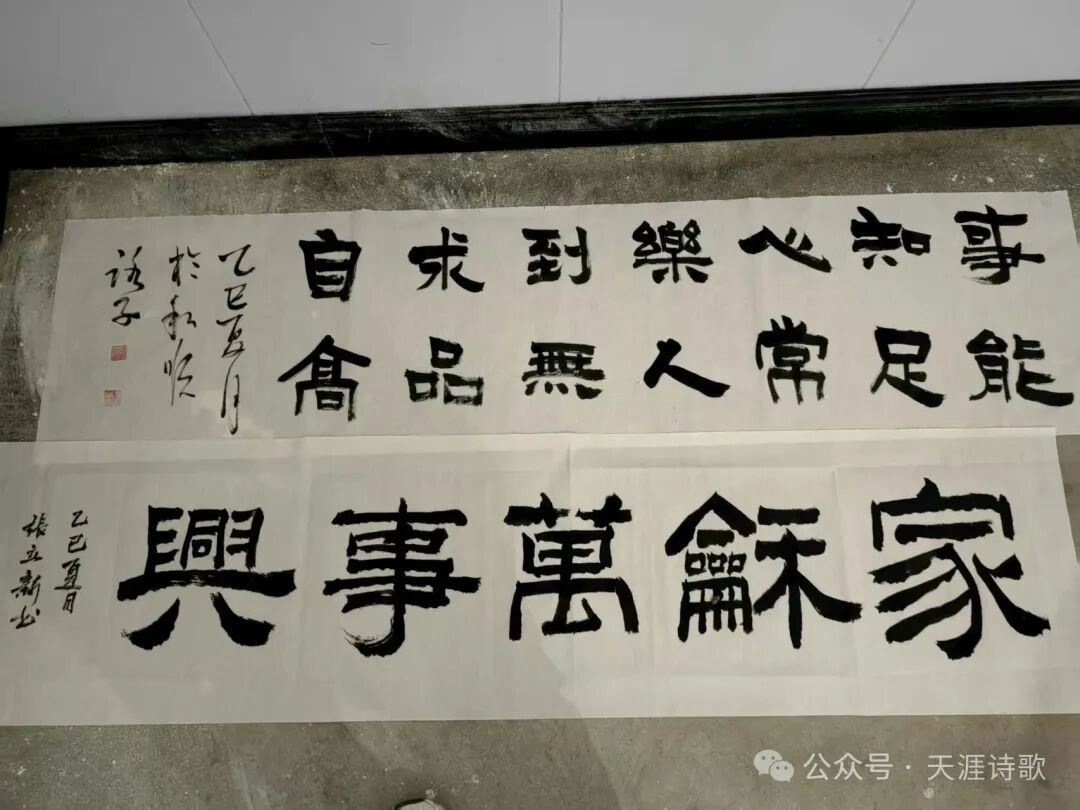 事能
知足
心常
樂人
到無
求品
自髙
乙巳夏月
於和順
子
家龢萬事興
乙巳夏月
張立新书
公众号 · 天涯诗歌